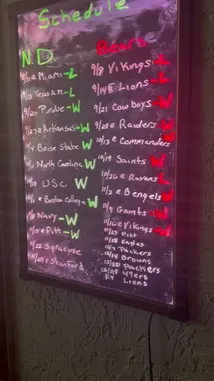 Schedule
N.D.
@ Miami-L
Texam-L
9/20 Purdue-W
9/27 @ Arkansas-W
Boise State W
North Carolina W
USC W
@ Boston College-W
Navy-W
@ Pitt-W
11/22 Syracuse
@ Stanford
Bears
9/8 Vikings-L
9/14 @ Lions-L
9/21 Cowboys-W
9/28 @ Raiders-W
10/13 @ Commanders
10/19 Saints-W
10/26 @ Ravens-L
11/2 @ Bengels-W
11/9 Giants-W
11/16 @ Vikings-W
11/23 Pitt
11/28 Eagles
12/7 Packers
12/14 Browns
12/20 Packers
12/28 49ers
1/4 Lions